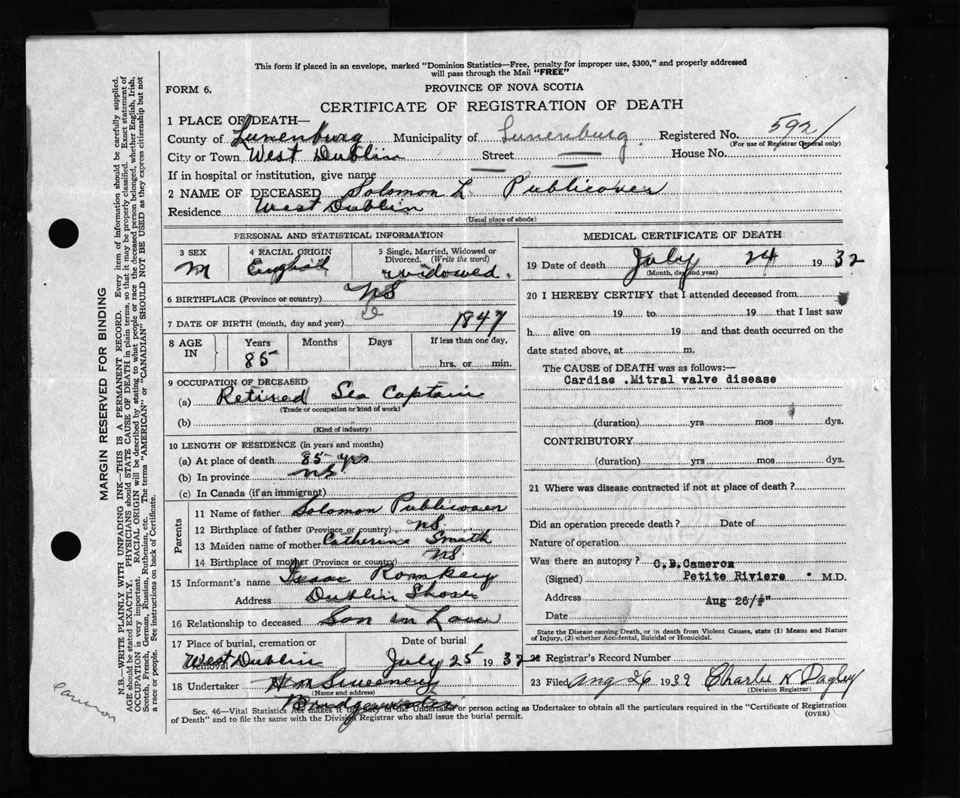 This form if placed in an envelope, marked "Dominion Statistics—Free, penalty for improper use, $300," and properly addressed
will pass through the Mail "FREE"
FORM 6.
PROVINCE OF NOVA SCOTIA
CERTIFICATE OF REGISTRATION OF DEATH
1 PLACE OF DEATH—
County of Lunenburg Municipality of Lunenburg Registered No. 5921
(For use of Registrar General only)
City or Town West Dublin Street House No.
If in hospital or institution, give name
2 NAME OF DECEASED Solomon L Publicover
Residence West Dublin
(Usual place of abode)
PERSONAL AND STATISTICAL INFORMATION
3 SEX
M
4 RACIAL ORIGIN
English
5 Single, Married, Widowed or
Divorced. (Write the word)
widowed.
6 BIRTHPLACE (Province or country) NS
7 DATE OF BIRTH (month, day and year) 1847
8 AGE IN
Years Months Days If less than one day,
85 hrs. or min.
9 OCCUPATION OF DECEASED
(a) Retired Sea Captain
(Trade or occupation or kind of work)
(b)
(Kind of industry)
10 LENGTH OF RESIDENCE (in years and months)
(a) At place of death 85 yrs
(b) In province NS
(c) In Canada (if an immigrant)
Parents
11 Name of father Solomon Publicover
12 Birthplace of father (Province or country) NS
13 Maiden name of mother Catherine Smith
14 Birthplace of mother (Province or country) NS
15 Informant's name Isaac Romkey
Address Dublin Shore
16 Relationship to deceased Son in Law
17 Place of burial, cremation or
removal West Dublin
Date of burial
July 25 1932
18 Undertaker H M Sweeney
(Name and address)
Bridgewater
MEDICAL CERTIFICATE OF DEATH
19 Date of death July 24 1932
(Month, day and year)
20 I HEREBY CERTIFY that I attended deceased from
19 to 19 that I last saw
h alive on 19 and that death occurred on the
date stated above, at m.
The CAUSE of DEATH was as follows:—
Cardiac .Mitral valve disease
(duration) yrs mos dys.
CONTRIBUTORY
(duration) yrs mos dys.
21 Where was disease contracted if not at place of death?
Did an operation precede death? Date of
Nature of operation
Was there an autopsy? C.B.Cameron
(Signed) Petite Riviere M.D.
Address
Aug 26/
Date
State the Disease causing Death, or in death from Violent Causes, state (1) Means and Nature
of Injury, (2) whether Accidental, Suicidal or Homicidal.
22 Registrar's Record Number
23 Filed Aug 26 1932 Charlie N
(Division Registrar)
Sec. 46—Vital Statistics Act makes it the duty of the Undertaker or person acting as Undertaker to obtain all the particulars required in the "Certificate of Registration
of Death" and to file the same with the Division Registrar who shall issue the burial permit.
(OVER)
MARGIN RESERVED FOR BINDING
N.B.—WRITE PLAINLY WITH UNFADING INK—THIS IS A PERMANENT RECORD. Every item of information should be carefully supplied.
AGE should be stated EXACTLY. PHYSICIANS should STATE CAUSE OF DEATH in plain terms, so that it may be properly classified. Exact statement of
OCCUPATION is very important. RACIAL ORIGIN will be described by stating to what people or race the deceased person belonged, whether English, Irish,
Scotch, French, German, Russian, Ruthenian, etc. The terms "AMERICAN" or "CANADIAN" SHOULD NOT BE USED as they express citizenship but not
a race or people. See instructions on back of Certificate.
Cameron